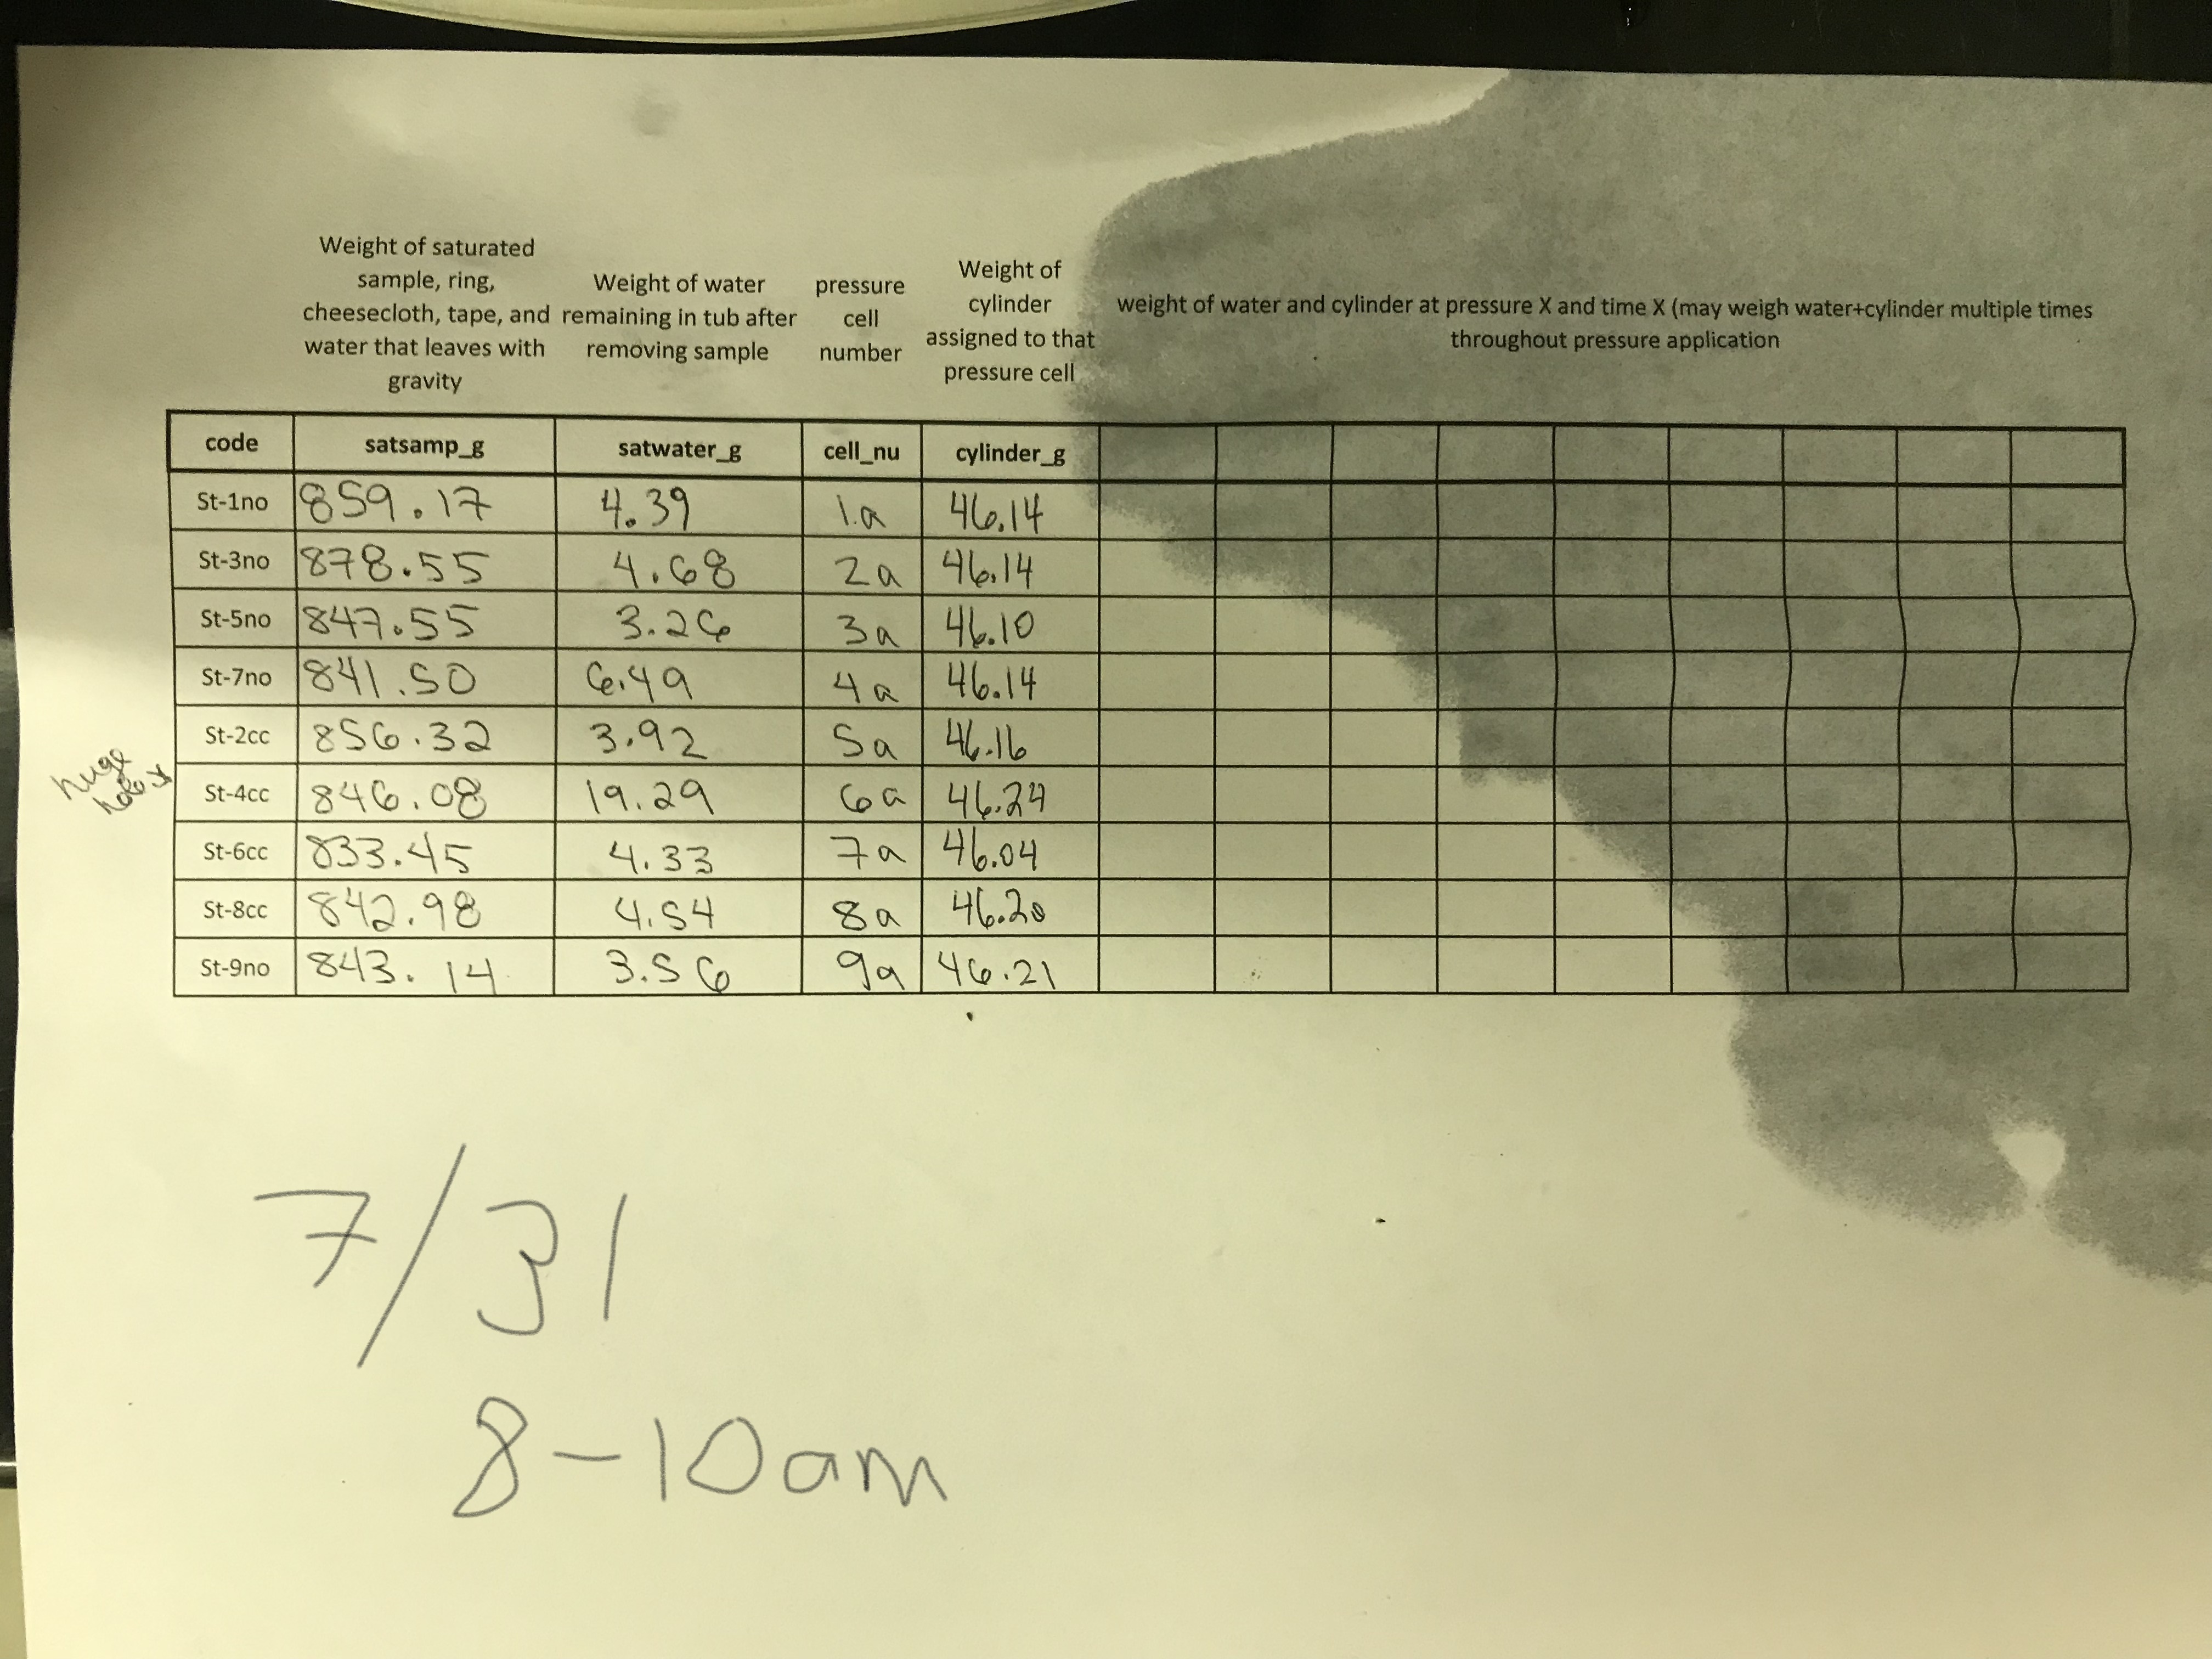 Weight of saturated
sample, ring,
cheesecloth, tape, and
water that leaves with
gravity
Weight of water
remaining in tub after
removing sample
pressure
cell
number
Weight of
cylinder
assigned to that
pressure cell
weight of water and cylinder at pressure X and time X (may weigh water+cylinder multiple times
throughout pressure application
code satsamp_g satwater_g cell_nu cylinder_g
St-1no 859.17 4.39 1a 46.14
St-3no 878.55 4.68 2a 46.14
St-5no 847.55 3.26 3a 46.10
St-7no 841.50 6.49 4a 46.14
St-2cc 856.32 3.92 5a 46.16
huge
hole
St-4cc 846.08 19.29 6a 46.24
St-6cc 833.45 4.33 7a 46.04
St-8cc 842.98 4.54 8a 46.20
St-9no 843.14 3.56 9a 46.21
7/31
8-10am